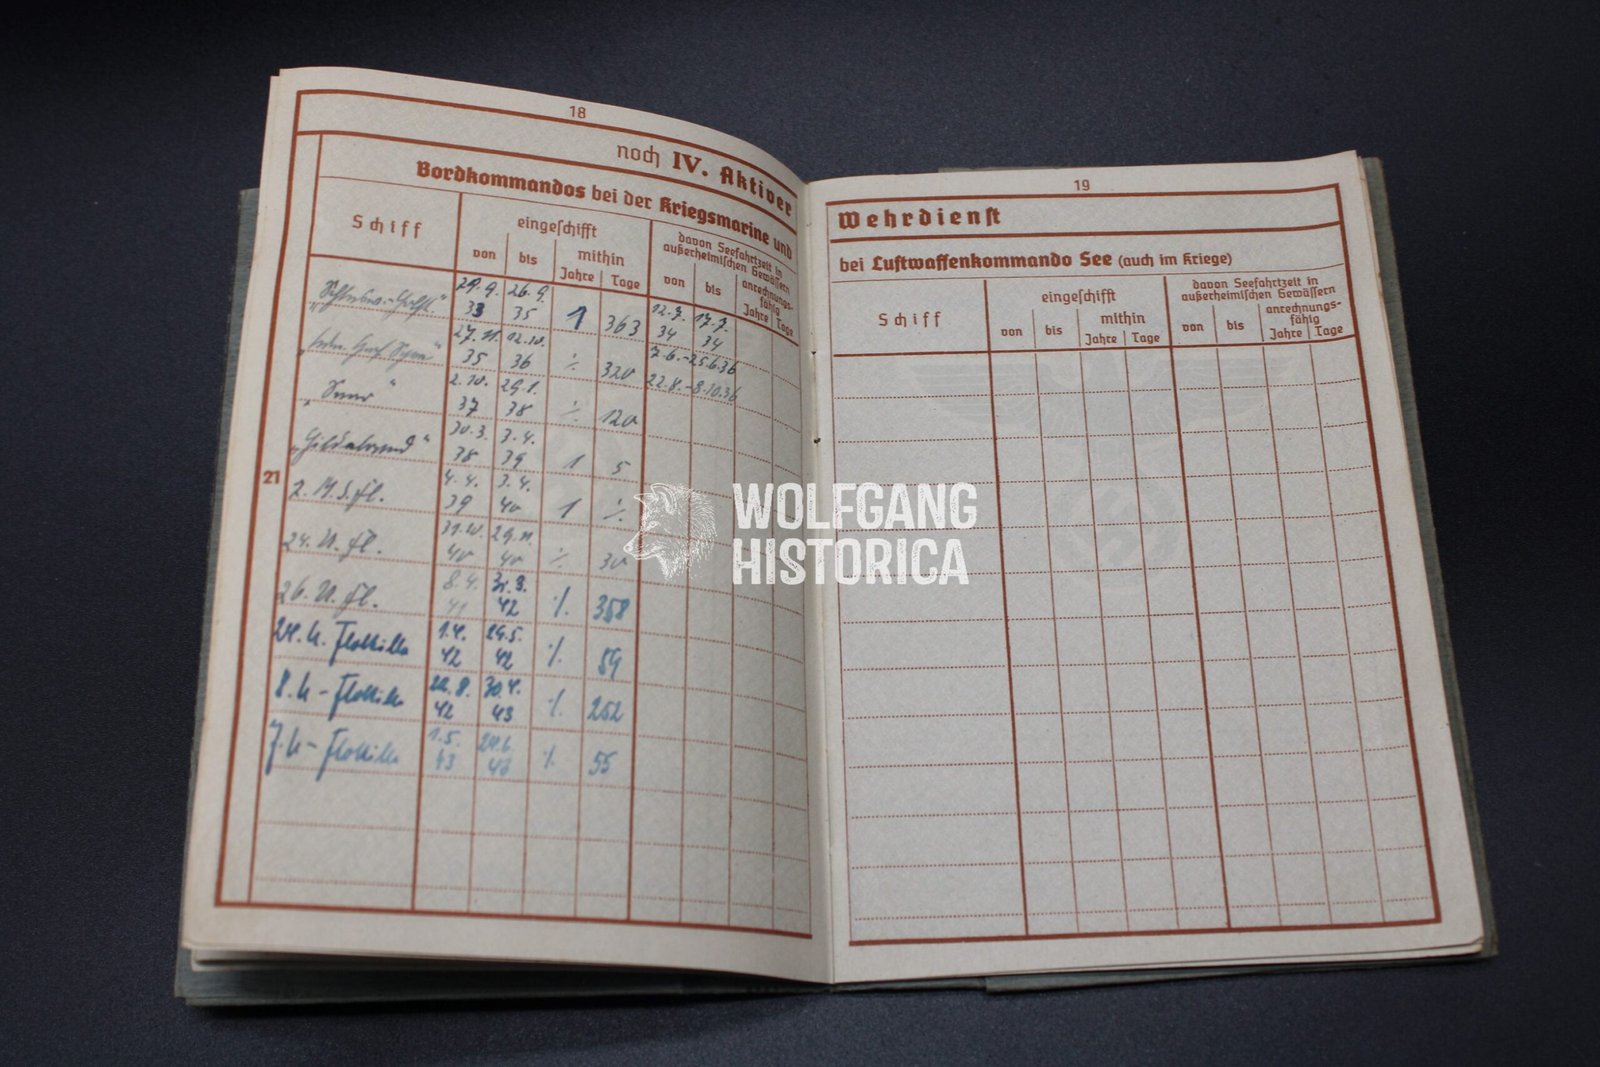 18
noch IV. Aktiver
Bordkommandos bei der Kriegsmarine und
Schiff
eingeschifft
davon Seefahrtzeit in
außerheimischen Gewässern
von bis mithin
Jahre Tage
von bis anrechnungs-
fähig
Jahre Tage
29.9. 26.9.
33 35 1 363
12.7. 17.7.
34 34
27.11. 12.10.
35 36 ./. 320
7.6.-25.6.36
22.8.-8.10.36
2.10. 29.1.
37 38 ./. 120
"Hildebrand" 30.3. 3.4.
38 39 1 5
21
2. M.S.Fl. 4.4. 3.4.
39 40 1 ./.
24. U. Fl. 31.10. 29.11.
40 40 ./. 30
26. U. Fl. 8.4. 31.3.
41 42 ./. 358
24. U. Flottille 1.4. 29.5.
42 42 ./. 59
8. U-Flottille 22.8. 30.4.
42 43 ./. 252
7. U-Flottille 1.5. 24.6.
43 43 ./. 55
19
Wehrdienst
bei Luftwaffenkommando See (auch im Kriege)
Schiff
eingeschifft
davon Seefahrtzeit in
außerheimischen Gewässern
von bis mithin
Jahre Tage
von bis anrechnungs-
fähig
Jahre Tage
WOLFGANG
HISTORICA